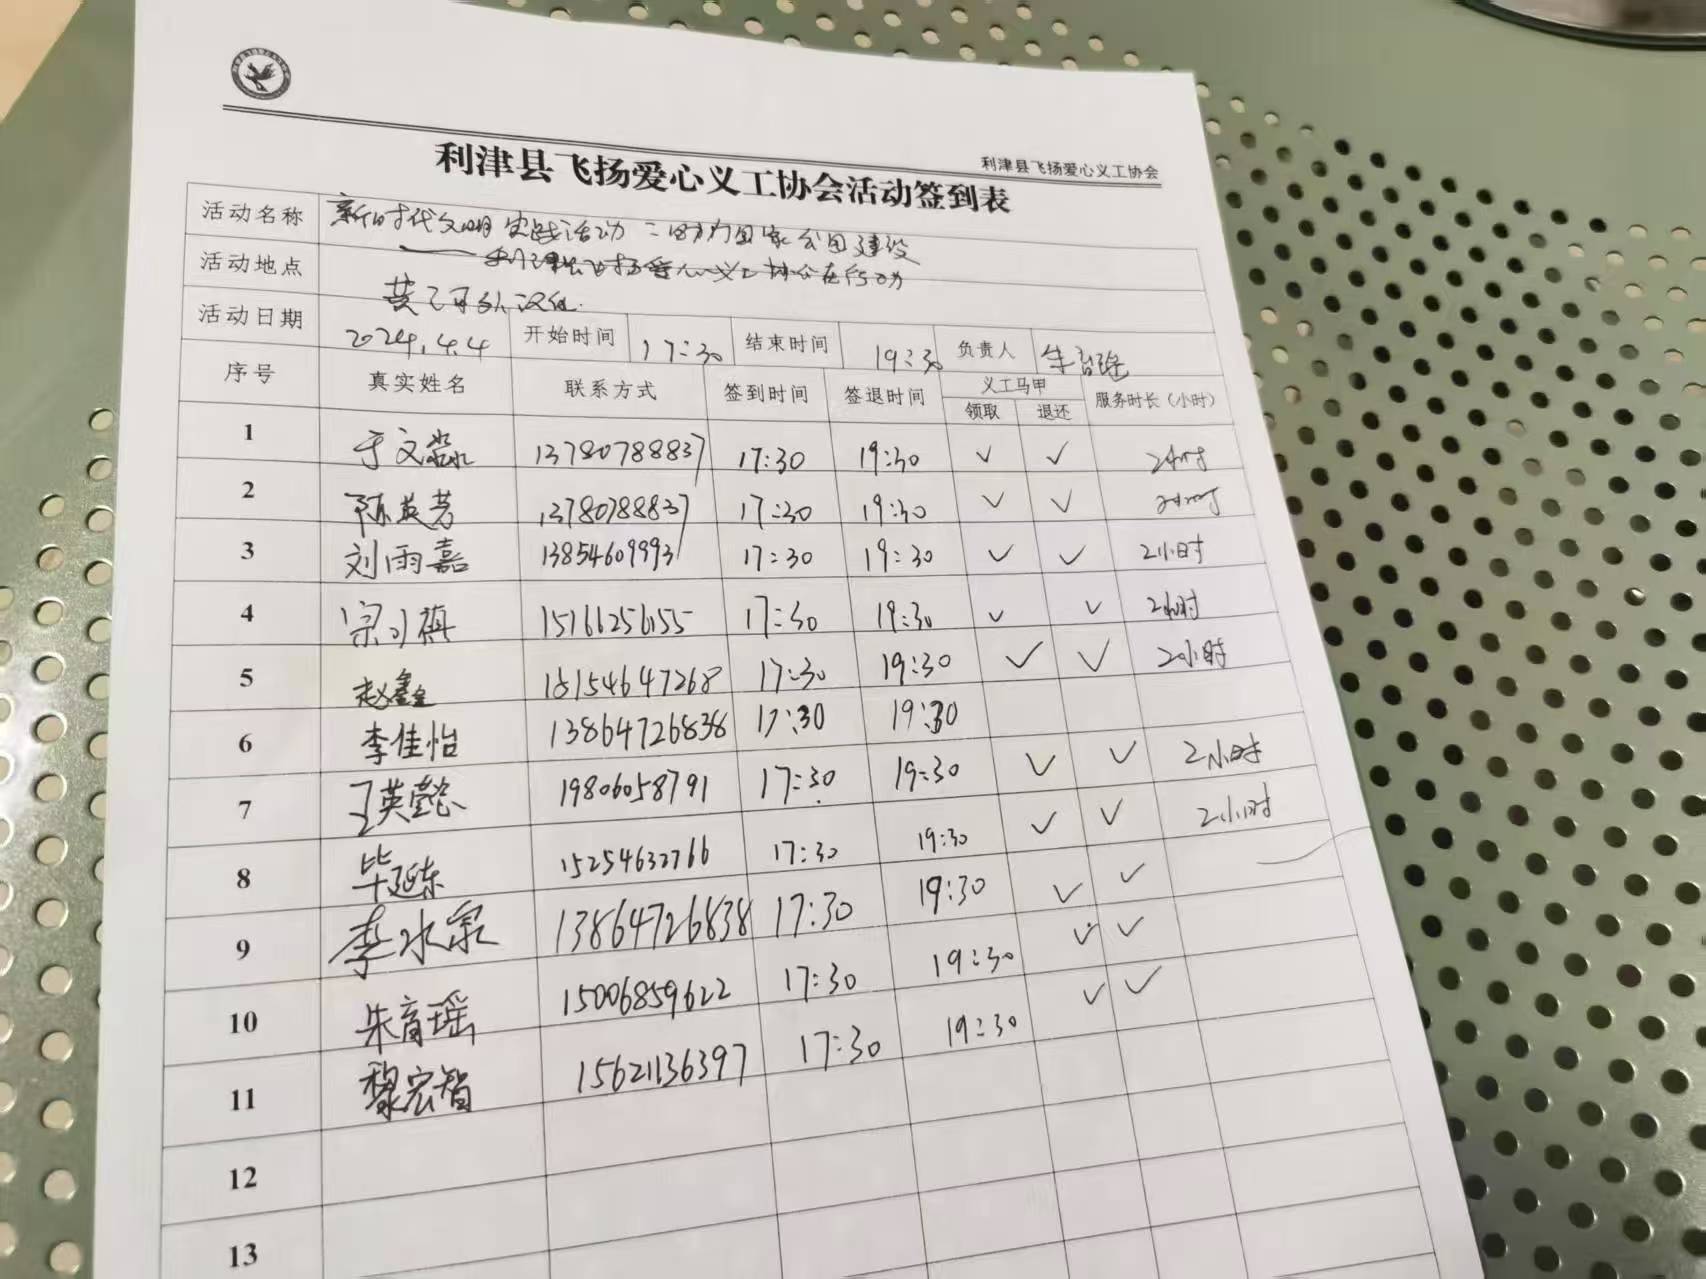 利津县飞扬爱心义工协会
利津县飞扬爱心义工协会活动签到表
活动名称 新时代文明实践活动：助力国家公园建设
——利津县飞扬爱心义工协会在行动
活动地点 黄河外滩
活动日期 2024.4.4 开始时间 17:30 结束时间 19:30 负责人 朱育瑶
序号 真实姓名 联系方式 签到时间 签退时间 义工马甲 服务时长（小时）
领取 退还
1 于文淼 13780788837 17:30 19:30 ✓ ✓ 2小时
2 陈英芳 13780788837 17:30 19:30 ✓ ✓ 2小时
3 刘雨嘉 13854609993 17:30 19:30 ✓ ✓ 2小时
4 宗 15166256155 17:30 19:30 ✓ ✓ 2小时
5 赵鑫 18154647268 17:30 19:30 ✓ ✓ 2小时
6 李佳怡 13864726838 17:30 19:30
7 王英懿 19806058791 17:30 19:30 ✓ ✓ 2小时
8 毕延东 15254632766 17:30 19:30 ✓ ✓ 2小时
9 李水泉 13864726838 17:30 19:30 ✓ ✓
10 朱育瑶 15006859622 17:30 19:30 ✓ ✓
11 穆宏智 15621136397 17:30 19:30 ✓ ✓
12
13